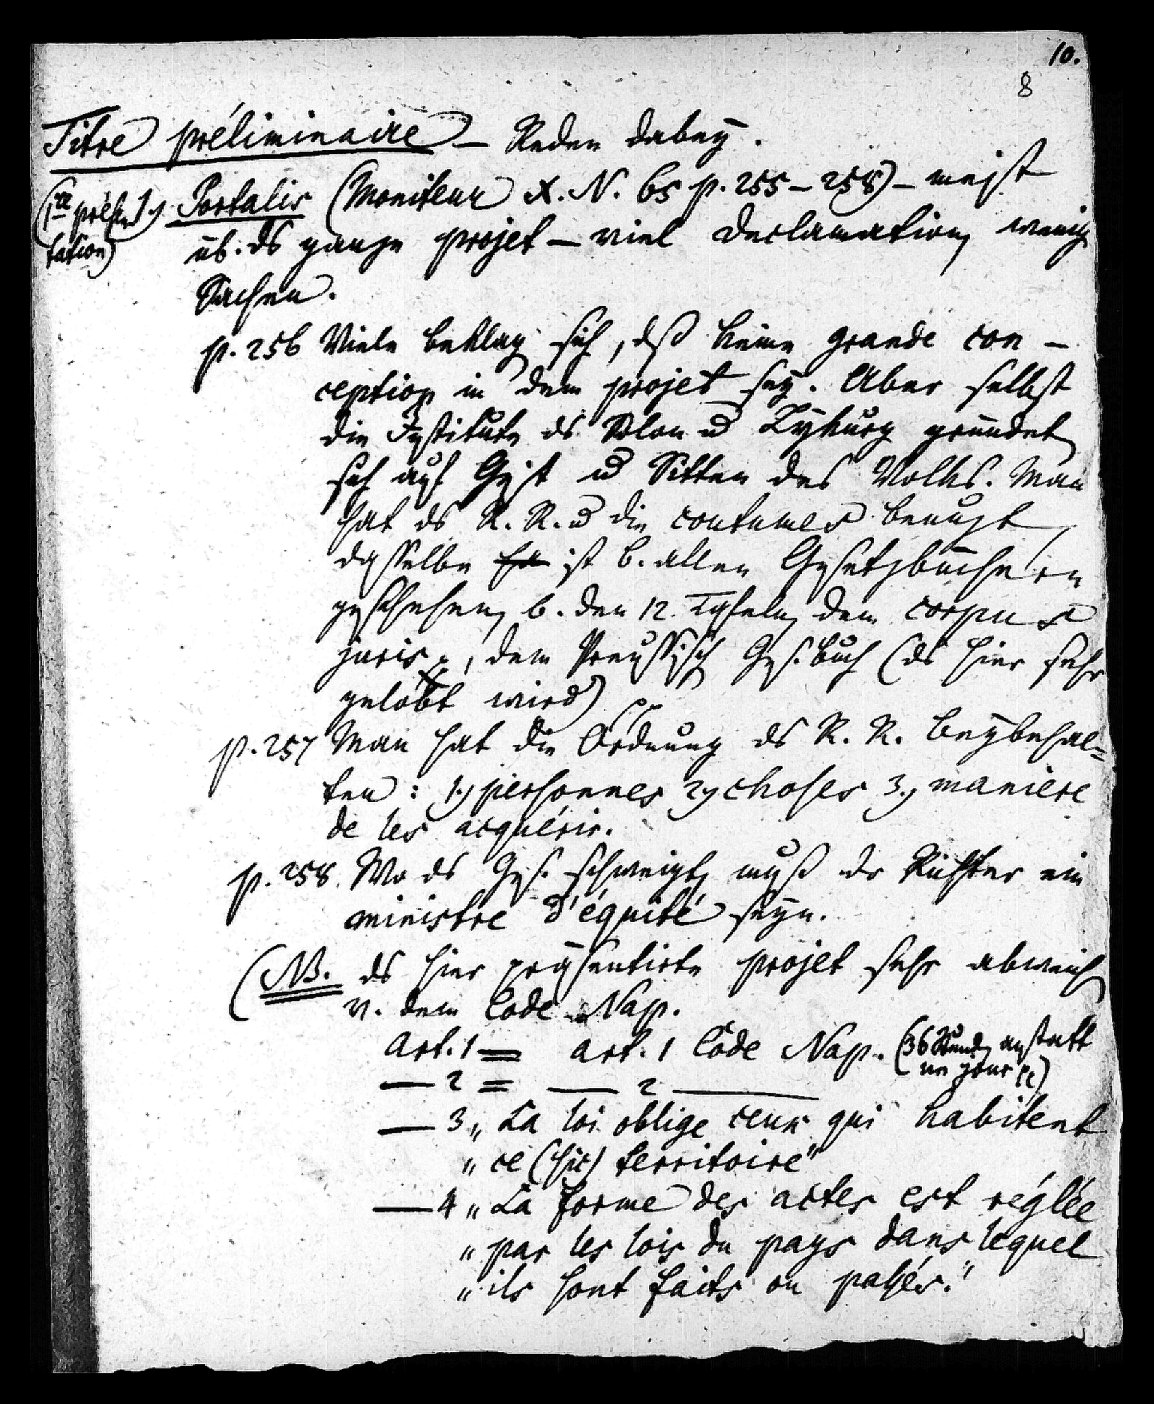 10.
8
Titre préliminaire – Reden dabey.
(1re présen
tation)
1.) Portalis (Moniteur X. N. 65 p. 255–258) – meist
üb. ds ganze projet – viel declamation, wenig
Sachen.
p. 256 Viele beklag sich, dß keine grande con-
ception in dem projet sey. Aber selbst
die Institute ds Solon u Lykurg gründet
sich auf Geist u Sitten des Volks. Man
hat ds R. R. u die coutumes benuzt,
dasselbe ist b. allen Gesetzbüchern
geschehen, b. den 12 Tafeln, dem corpus
juris, dem Preussisch Ges.buch (ds hier sehr
gelobt wird)
p. 257 Man hat die Ordnung ds R. R. beybehal=
ten: 1.) personnes 2.) choses 3.) maniere
de les acquérir.
p. 258. Wo ds Ges. schweigt, muß dr Richter ein
ministre d'équité seyn.
(NB. ds hier präsentirte projet sehr abweich
v. dem Code Nap.
Art. 1 = art. 1 Code Nap. (36 Stund anstatt
un jour &c)
— 2 = — 2 —
— 3 „ La loi oblige ceux qui habitent
„ ce (sic) territoire"
— 4 „ La forme des actes est réglée
„ par les lois du pays dans lequel
„ ils sont faits ou passés."